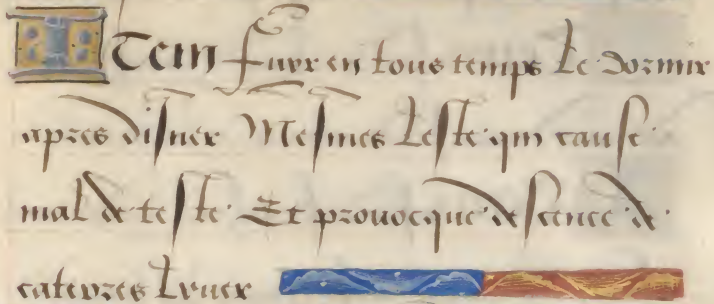 Item fuyr en tous temps Le dormir
apres disner Mesmes Leste qui cause
mal de teste Et provocque descence de
caterres Lyver